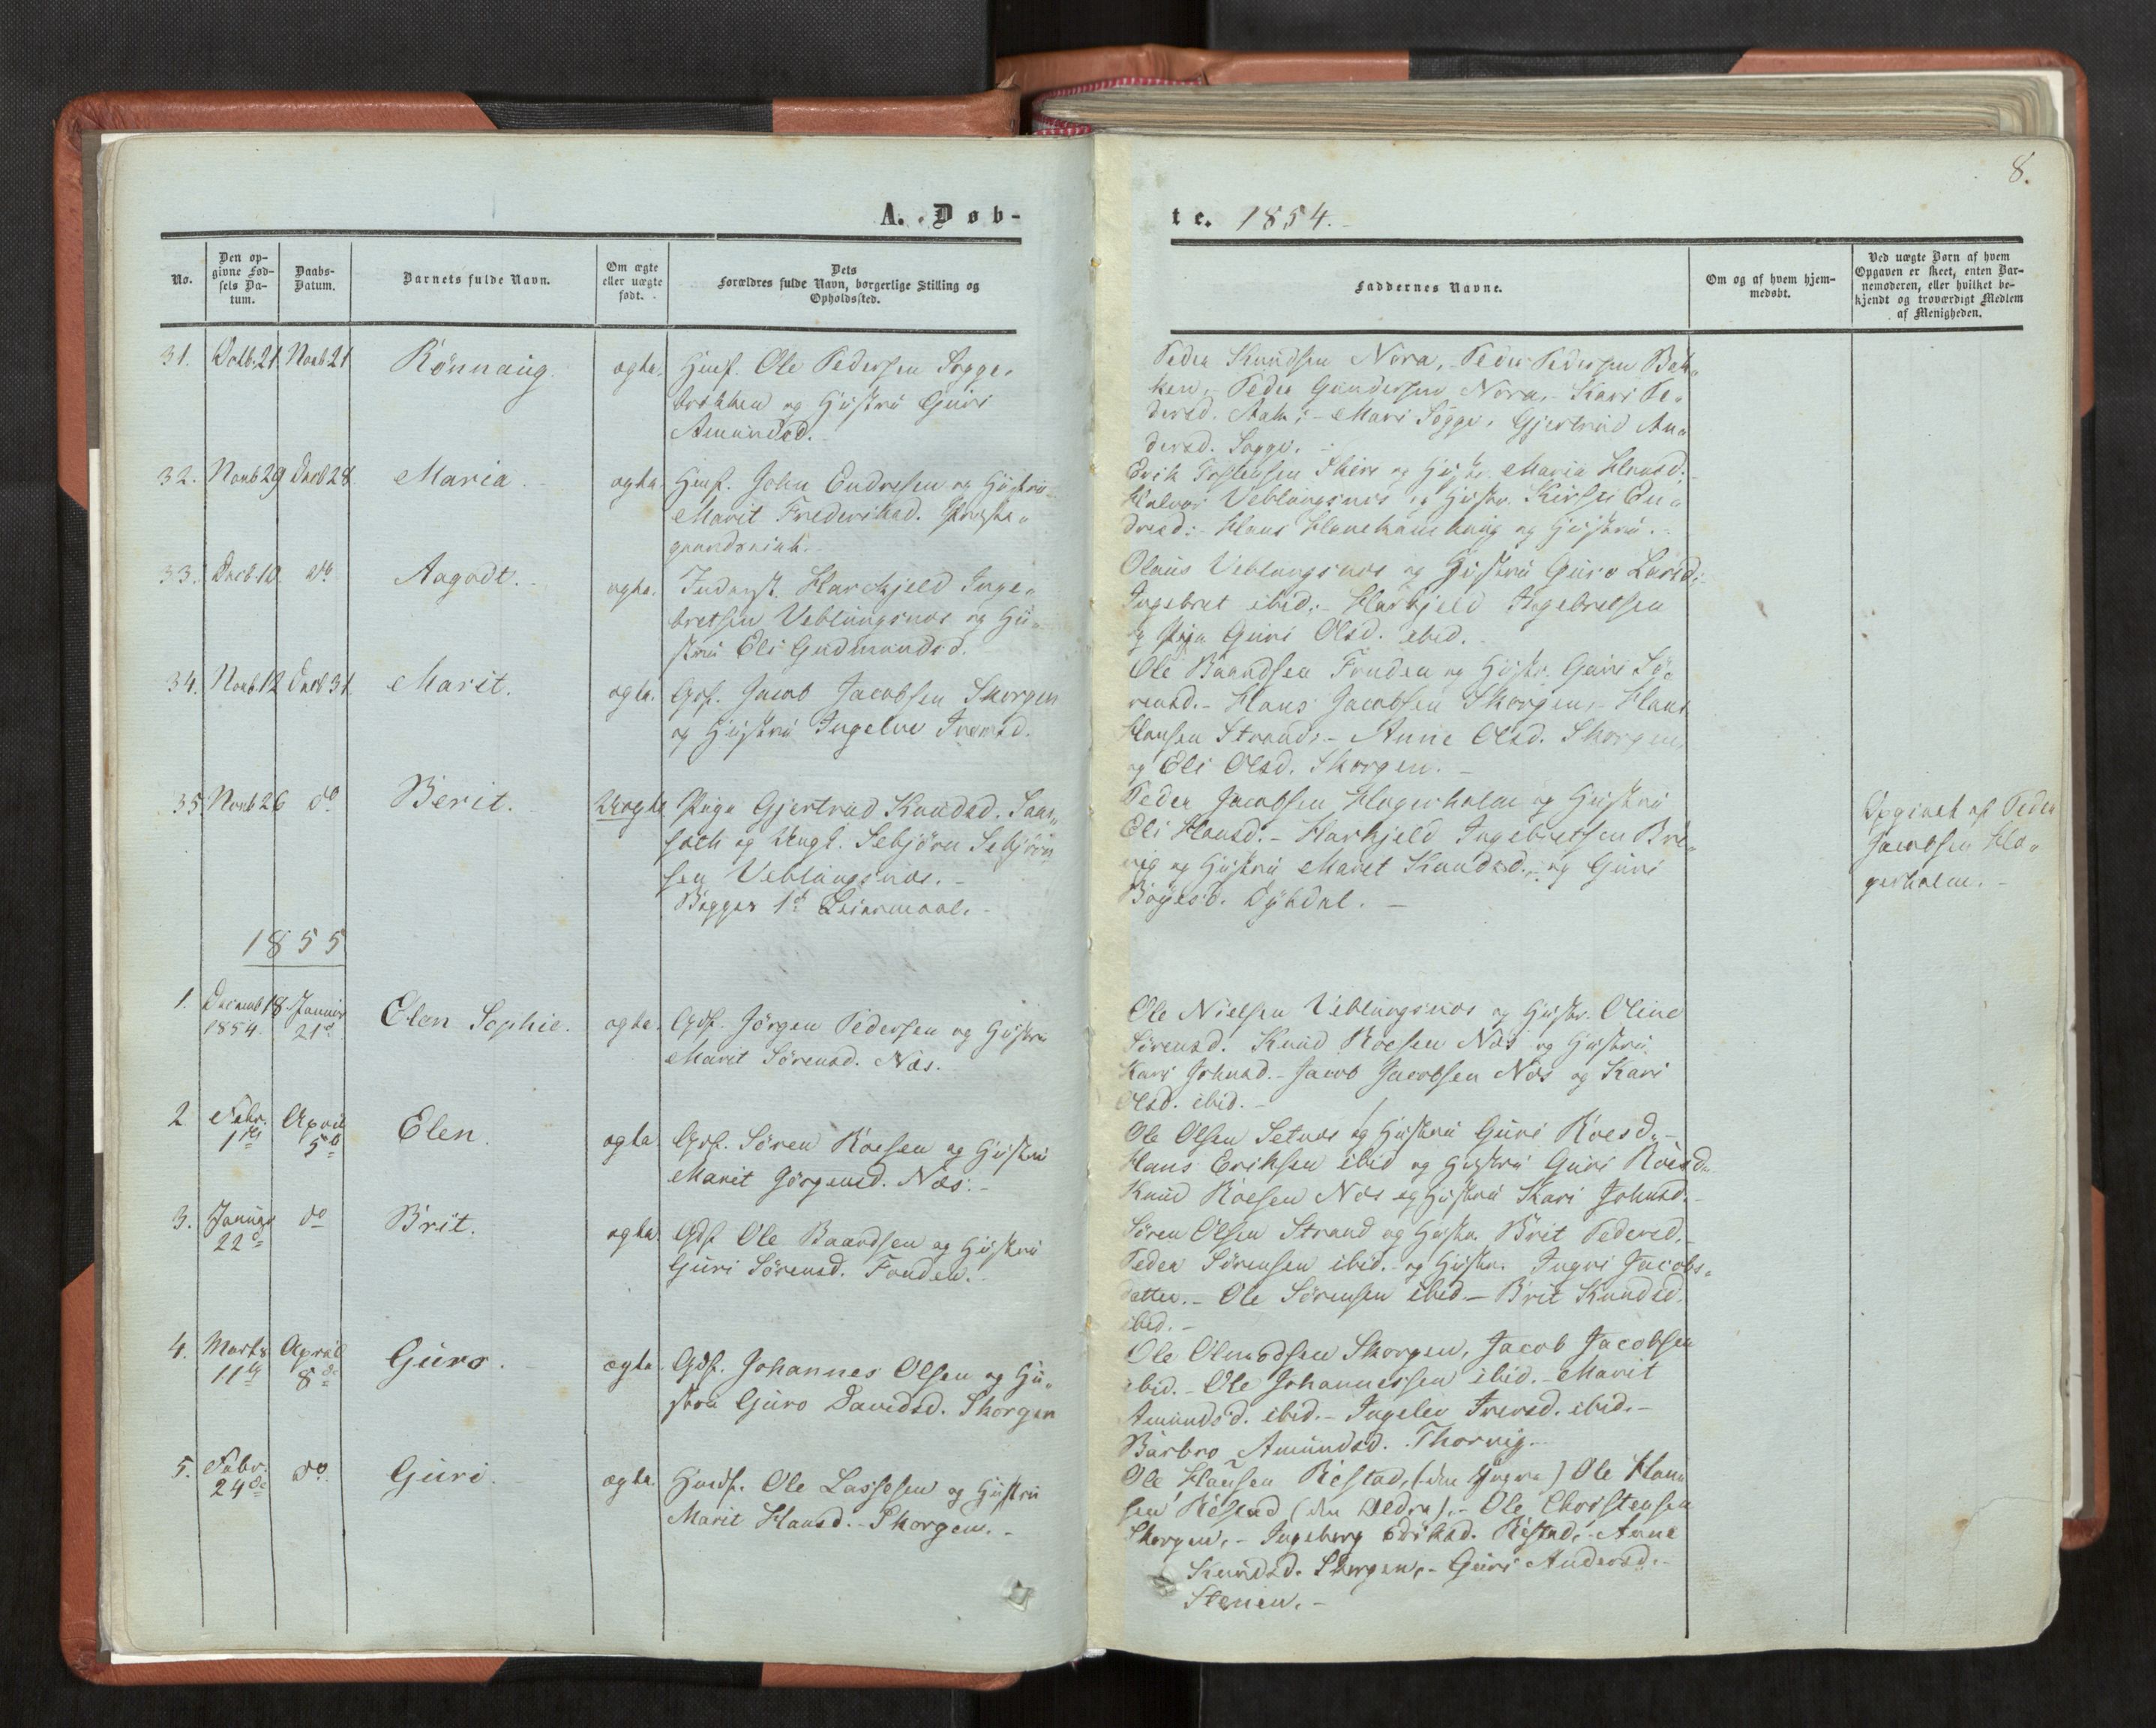 8.
A. Døb-
te. 1854.
No.
Den op-
givne Fød-
sels Da-
tum.
Daabs-
Datum.
Barnets fulde Navn.
Om ægte
eller uægte
født.
Dets
Forældres fulde Navn, borgerlige Stilling og
Opholdssted.
Faddernes Navne.
Om og af hvem hjem-
medøbt.
Ved uægte Børn af hvem
Opgaven er skeet, enten Bar-
nemoderen, eller hvilket be-
kjendt og troværdigt Medlem
af Menigheden.
31. Octb. 21 Novb 21 Rönnaug ægte. Hmf. Ole Pedersen Sogge-
brækken og Hustru Guri
Amundsd.
Peder Knudsen Nora, Peder Pedersen Bak-
ken, Peder Gundersen Nora, Kari Pe-
dersd. Aak, Mari Sogge, Gjertrud An-
dersd. Sogge.
32. Novb 29 Decb 28 Maria. ægte. Hmf. John Endresen og Hustru
Marit Frederiksd.
Erik og Hustr. Maria Hansd.
Halvor Veblungsnæs og Hustr. Kirsti En-
dresd: Hans og Hustru.
33. Decb. 10 do Aagodt. ægte. Inderst. Harkjeld Inge-
bretsen Veblungsnæs og Hu-
stru Eli Gudmundsd.
Olaus Veblungsnæs og Hustru Guro Larsd:
Ingebret ibid: Harkjeld Ingebretsen
og Pige Guri Olsd. ibid.
34. Novb. 12 Decb 31 Marit. ægte. Grf. Jacob Jacobsen Skorgen
og Hustru Ingelev Iversd.
Ole Baardsen Fonden og Hustr. Guri Sö-
rensd. Hans Jacobsen Skorgen, Hans
Hansen Strand, Anne Olsd. Skorgen,
og Eli Olsd. Skorgen.
35. Novb 26 do Berit. Uægte Pige Gjertrud Knudsd.
og Ungk. Sebjörn Sebjörn-
sen Veblungsnæs.
Begges 1ste Leiermaal.
Peder Jacobsen Hagerholm og Hustru
Eli Hansd. Harkjeld Ingebretsen Bre-
vig og Hustru Marit Knudsd., og Guri
Dybdal.
Opgivet af Peder
Jacobsen Ha-
gerholm.
1855
1. Decemb 18 1854. Januar 21de Elen Sophie. ægte. Grdf. Jörgen Pedersen og Hustru
Marit Sörensd. Næs.
Ole Nielsen Veblungsnæs og Hustr. Oline
Sörensd. Knud Roesen Næs og Hustru
Kari Johnsd. Jacob Jacobsen Næs og Kari
Olsd. ibid.
2 Febr. 1ste April 5te Elen. ægte Grdf. Sören Roesen og Hustru
Marit Jörgensd. Næs.
Ole Olsen Setnæs og Hustru Guri Roesd.
Hans Eriksen ibid og Hustru Guri Roesd.
Knud Roesen Næs og Hustru Kari Johnsd.
3. Januar 22de do Brit. ægte Grdf. Ole Baardsen og Hustru
Guri Sörensd. Fonden.
Sören Olsen Strand og Hustr. Brit Pedersd.
Peder Sörensen ibid. og Hustr. Ingri Jacobs-
datter. Ole Sörensen ibid. Brit Knudsd.
ibid.
4. Marts 11te April 8de Guro. ægte Grdf. Johannes Olsen og Hu-
stru Guro Davidsd. Skorgen
Ole Skorgen, Jacob Jacobsen
ibid. Ole Johannessen ibid. Marit
Amundsd. ibid. Ingelev Iversd. ibid.
Barbro Amundsd. Thorvig.
5. Febr. 24de do Guri. ægte. Husf. Ole Lassesen og Hustru
Marit Hansd. Skorgen.
Ole Hansen Ristad, (den yngre) Ole Han-
sen Ristad (den ældre), Ole Christensen
Skorgen, Ingeborg Eriksd. Ristad, Anne
Knudsd. Skorgen, Guri Andersd.
Stenen.